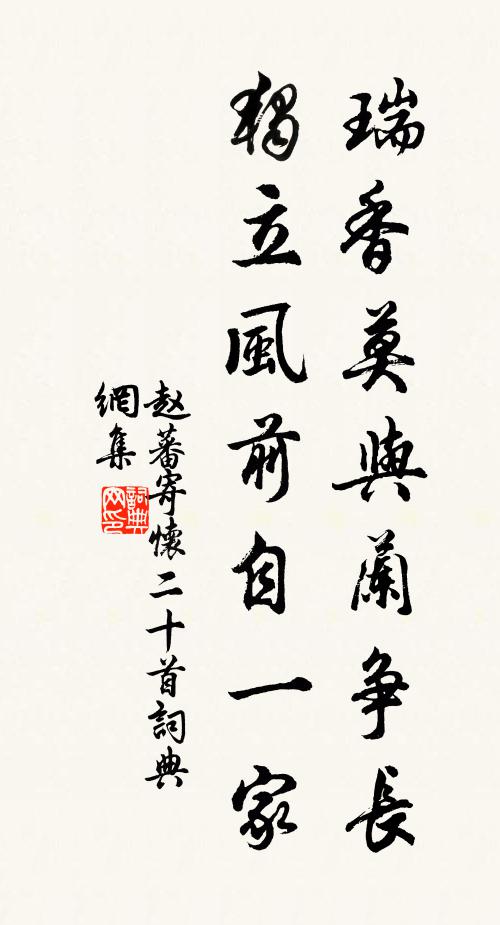 瑞香莫與蘭争長
獨立風前自一家
赵蕃寄懷二十首詞典
網集
詞典網印